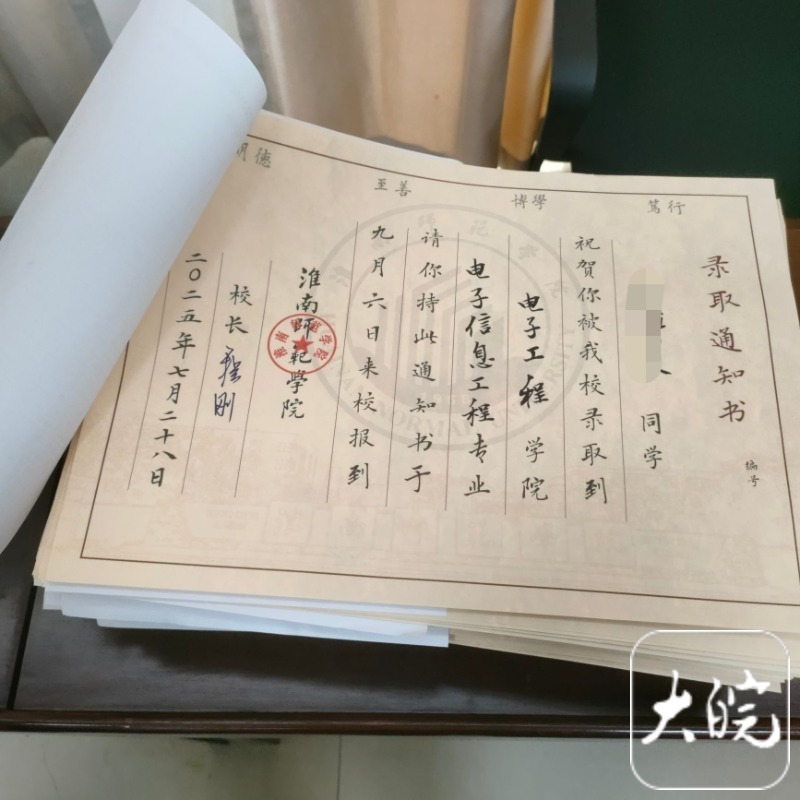 录取通知书
编号
同学
祝贺你被我校录取到
电子工程学院
电子信息工程专业
请你持此通知书于
九月六日来校报到
淮南师范学院
校长
二〇二五年七月二十八日
明德
至善
博學
篤行
大皖